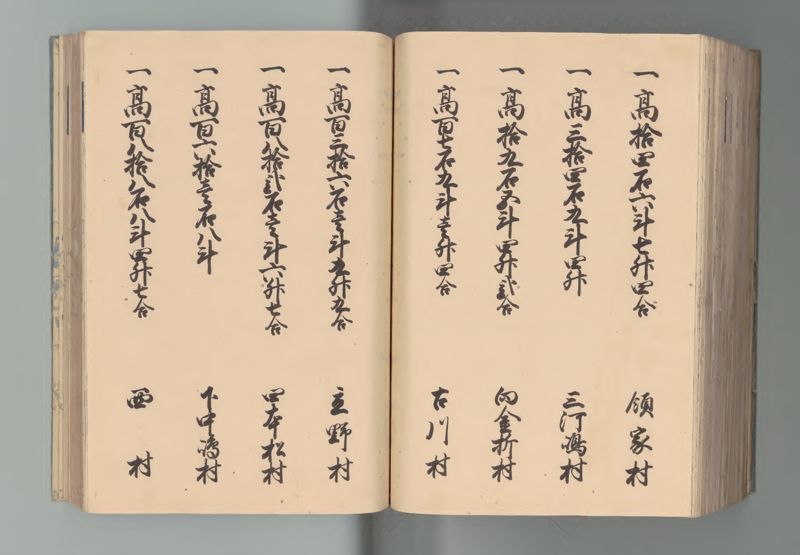 一高拾四石六斗七升四合 領家村
一高三拾四石九斗四升 三河嶋村
一高拾九石五斗四升弐合 向金折村
一高百七石九斗壱升四合 古川村
一高百三拾六石壱斗五升九合 立野村
一高百八拾弐石壱斗六升七合 四本松村
一高百六拾壱石八斗 下中嶋村
一高百八拾八石八斗四升七合 西村